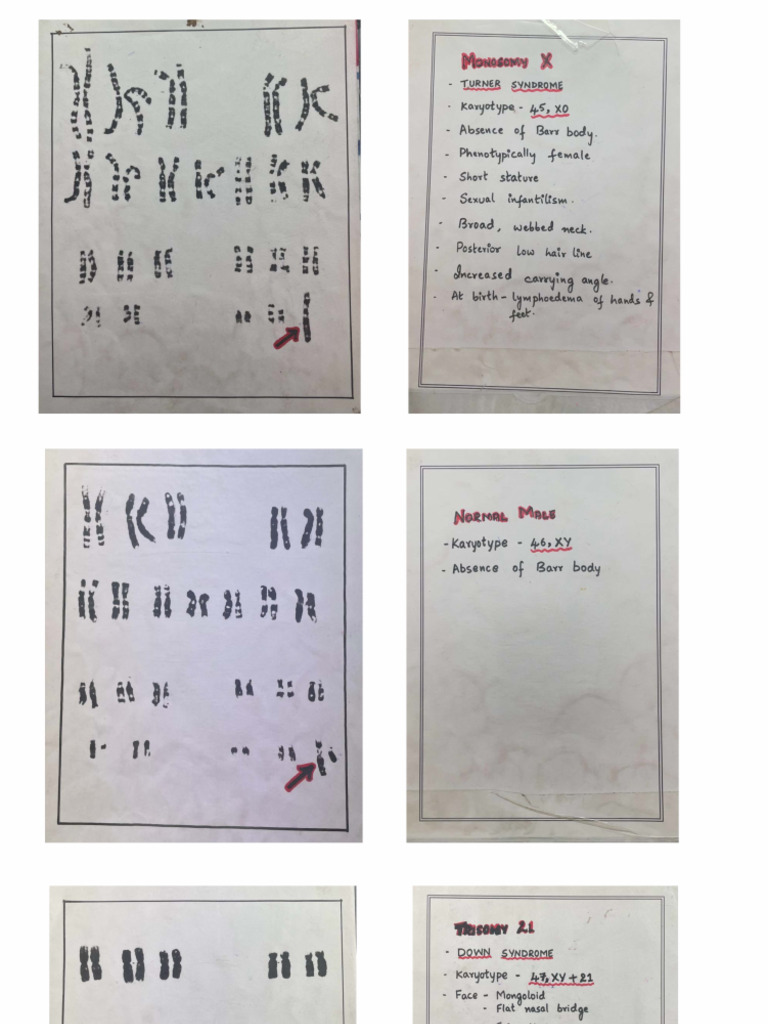 MONOSOMY X
- TURNER SYNDROME
- Karyotype - 45, XO
- Absence of Barr body.
- Phenotypically female
- Short stature
- Sexual infantilism.
- Broad, webbed neck.
- Posterior low hair line
- Increased carrying angle.
- At birth - lymphoedema of hands &
feet.
NORMAL MALE
- Karyotype - 46, XY
- Absence of Barr body
TRISOMY 21
- DOWN SYNDROME
- Karyotype - 47, XY + 21
- Face - Mongoloid
- Flat nasal bridge